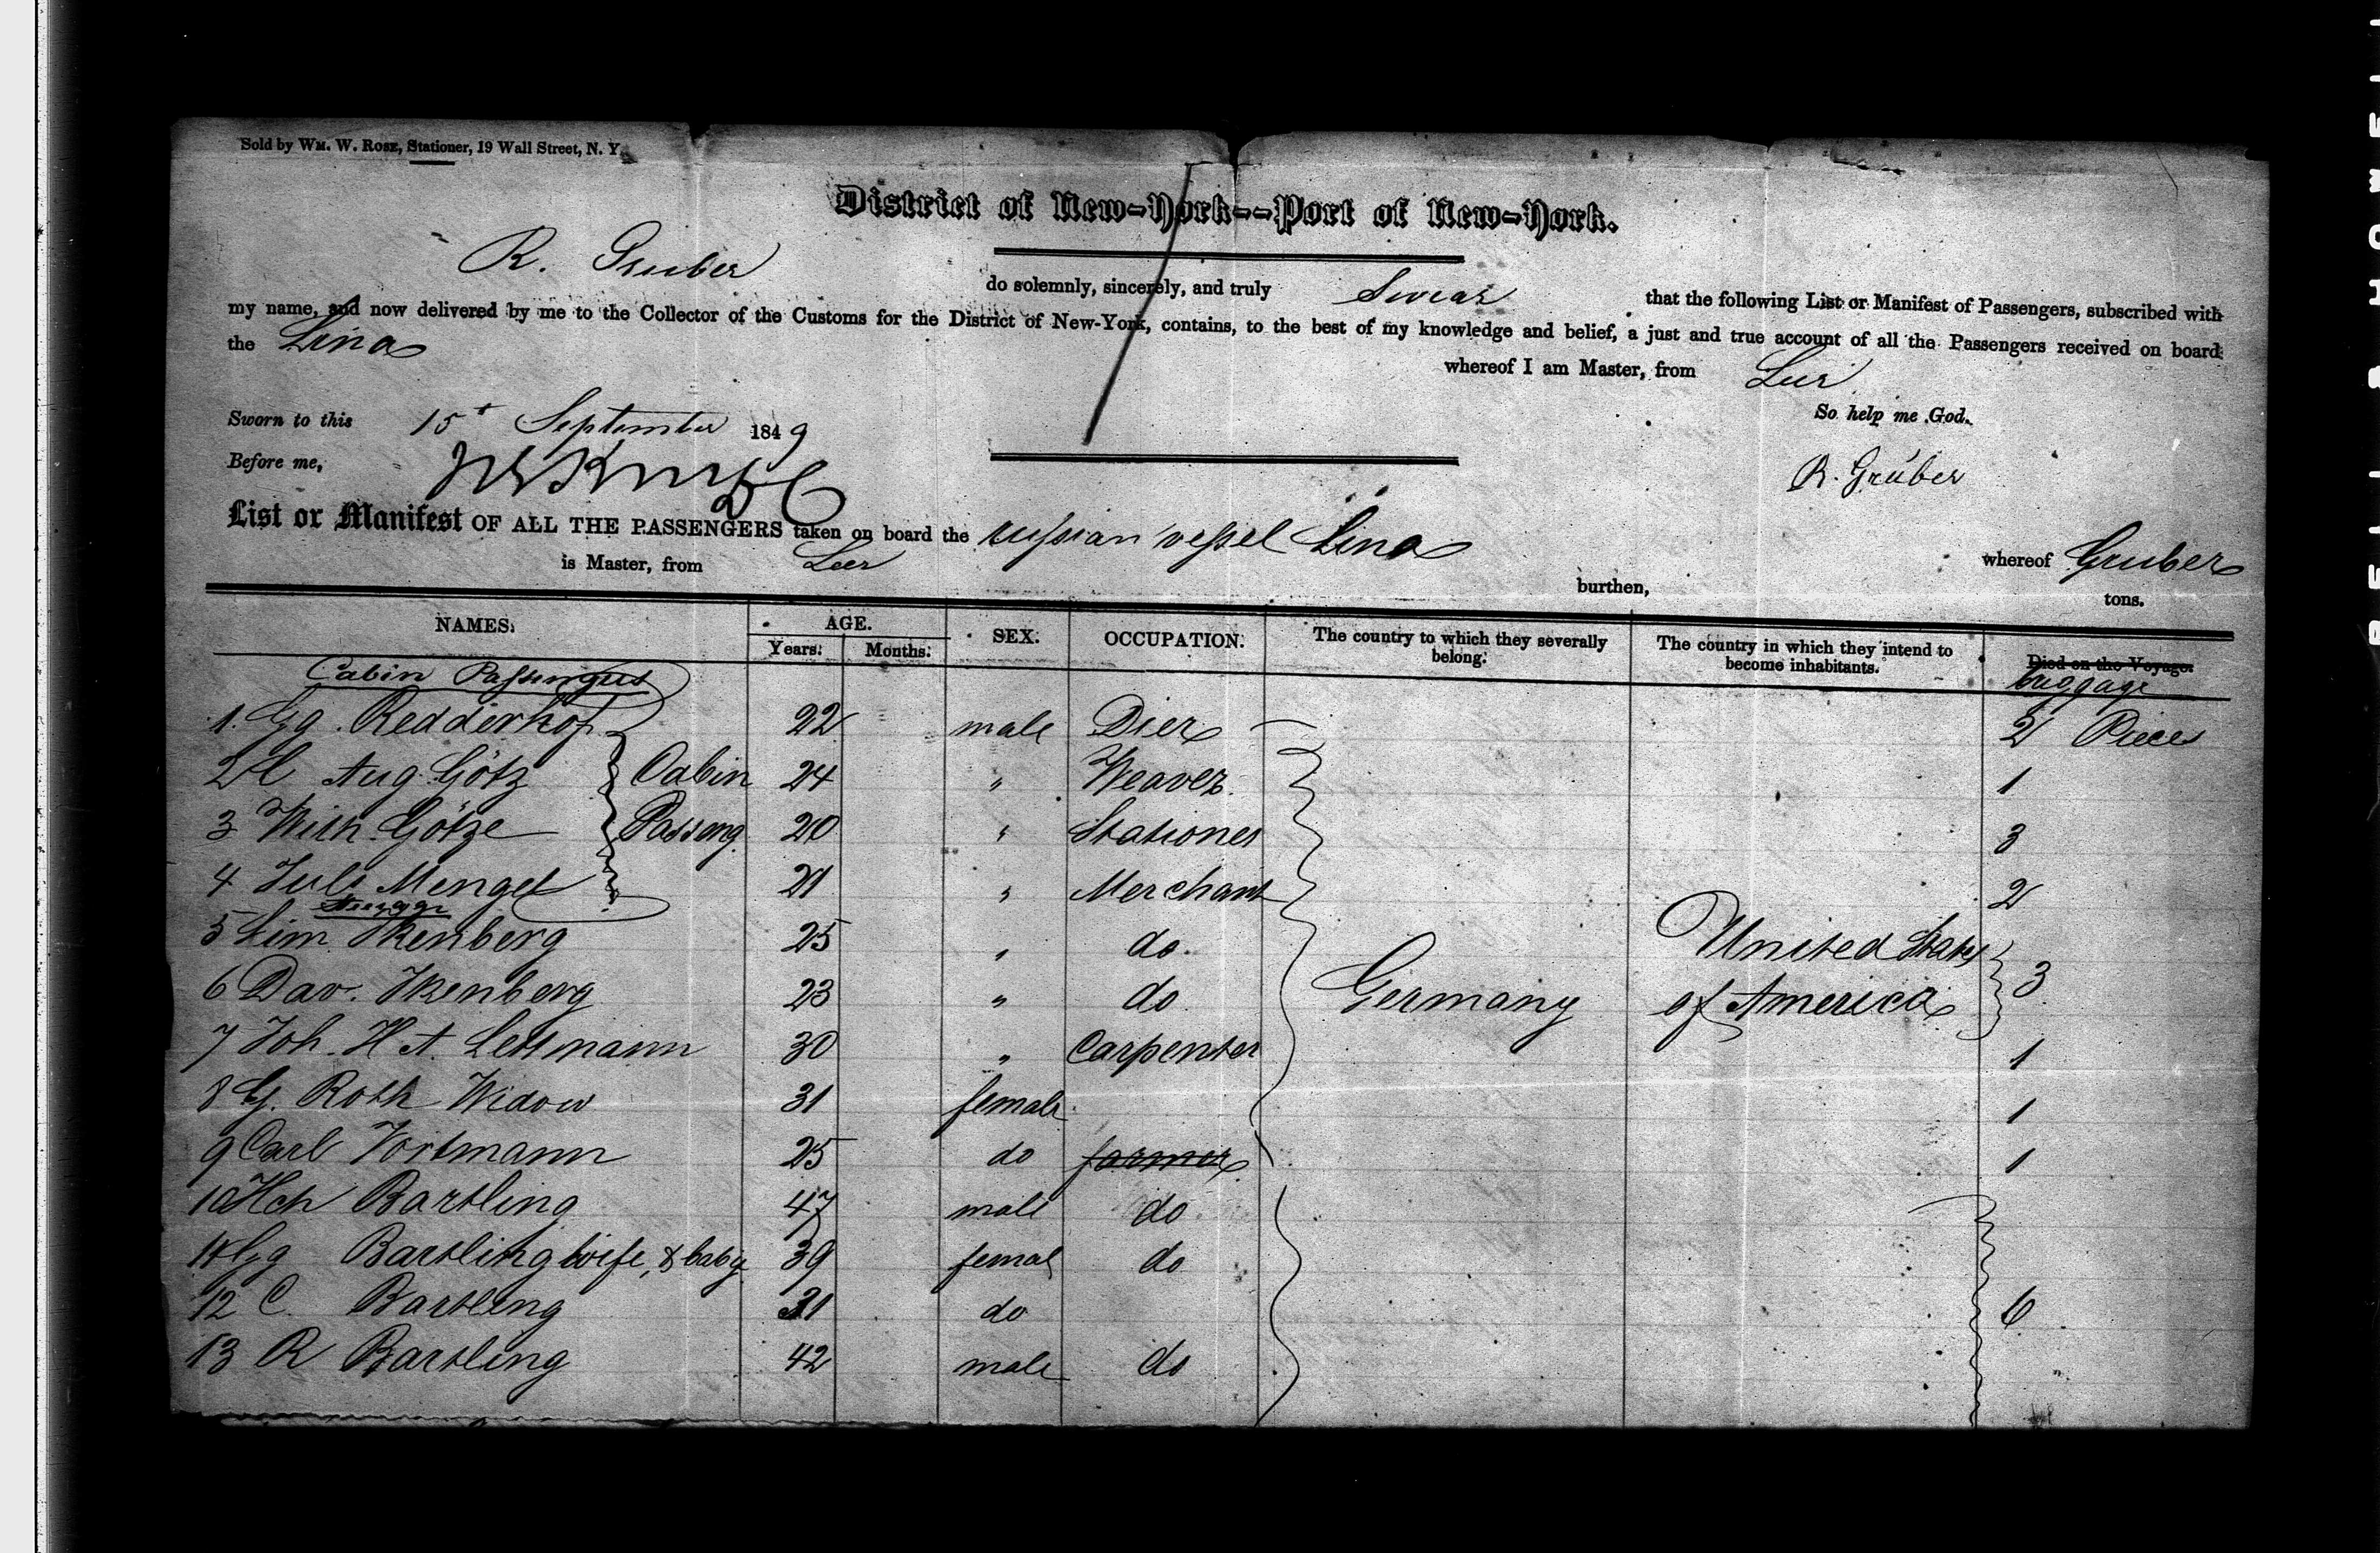 Sold by WM. W. ROSE, Stationer, 19 Wall Street, N. Y.
District of New-York--Port of New-York.
R. Gruber do solemnly, sincerely, and truly Swear that the following List or Manifest of Passengers, subscribed with
my name, and now delivered by me to the Collector of the Customs for the District of New-York, contains, to the best of my knowledge and belief, a just and true account of all the Passengers received on board
the Lina whereof I am Master, from Leer
Sworn to this 15t September 1849 So help me God.
Before me, R. Gruber
List or Manifest OF ALL THE PASSENGERS taken on board the russian vessel Lina whereof Gruber
is Master, from Leer burthen, tons.
NAMES. AGE. Years. Months. SEX. OCCUPATION. The country to which they severally belong. The country in which they intend to become inhabitants. Died on the Voyage. baggage
Cabin Passengers
1. Gg. Redderhof 22 male Dier 2 Pieces
2 C Aug. Götz Cabin 24 " Weaver 1
3 Wilh. Götze Passeng 20 " Stationer 3
4 Juls Mengel 21 " Merchant 2
5 Sim. Ikenberg 25 " do.
6 Dav. Ikenberg 23 " do Germany United States of America 3
7 Joh. H A. Lettmann 30 " Carpenter 1
8 G. Roth Widow 31 female 1
9 Carl Vortmann 25 do farmer 1
10 Hch Bartling 47 male do
11 Gg Bartling wife, & baby 39 femal do
12 C. Bartling 31 do 6
13 R Bartling 42 male do